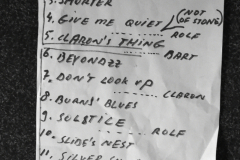 3. SHORTER
4. GIVE ME QUIET (NOT OF STONE)
..... ROLF
5. CLARON'S THING
..... BART
6. BEYONDZZ
7. DON'T LOOK UP
..... CLARON
8. BURNS' BLUES
9. SOLSTICE
..... ROLF
10. SLIDE'S NEST
11. SILVER